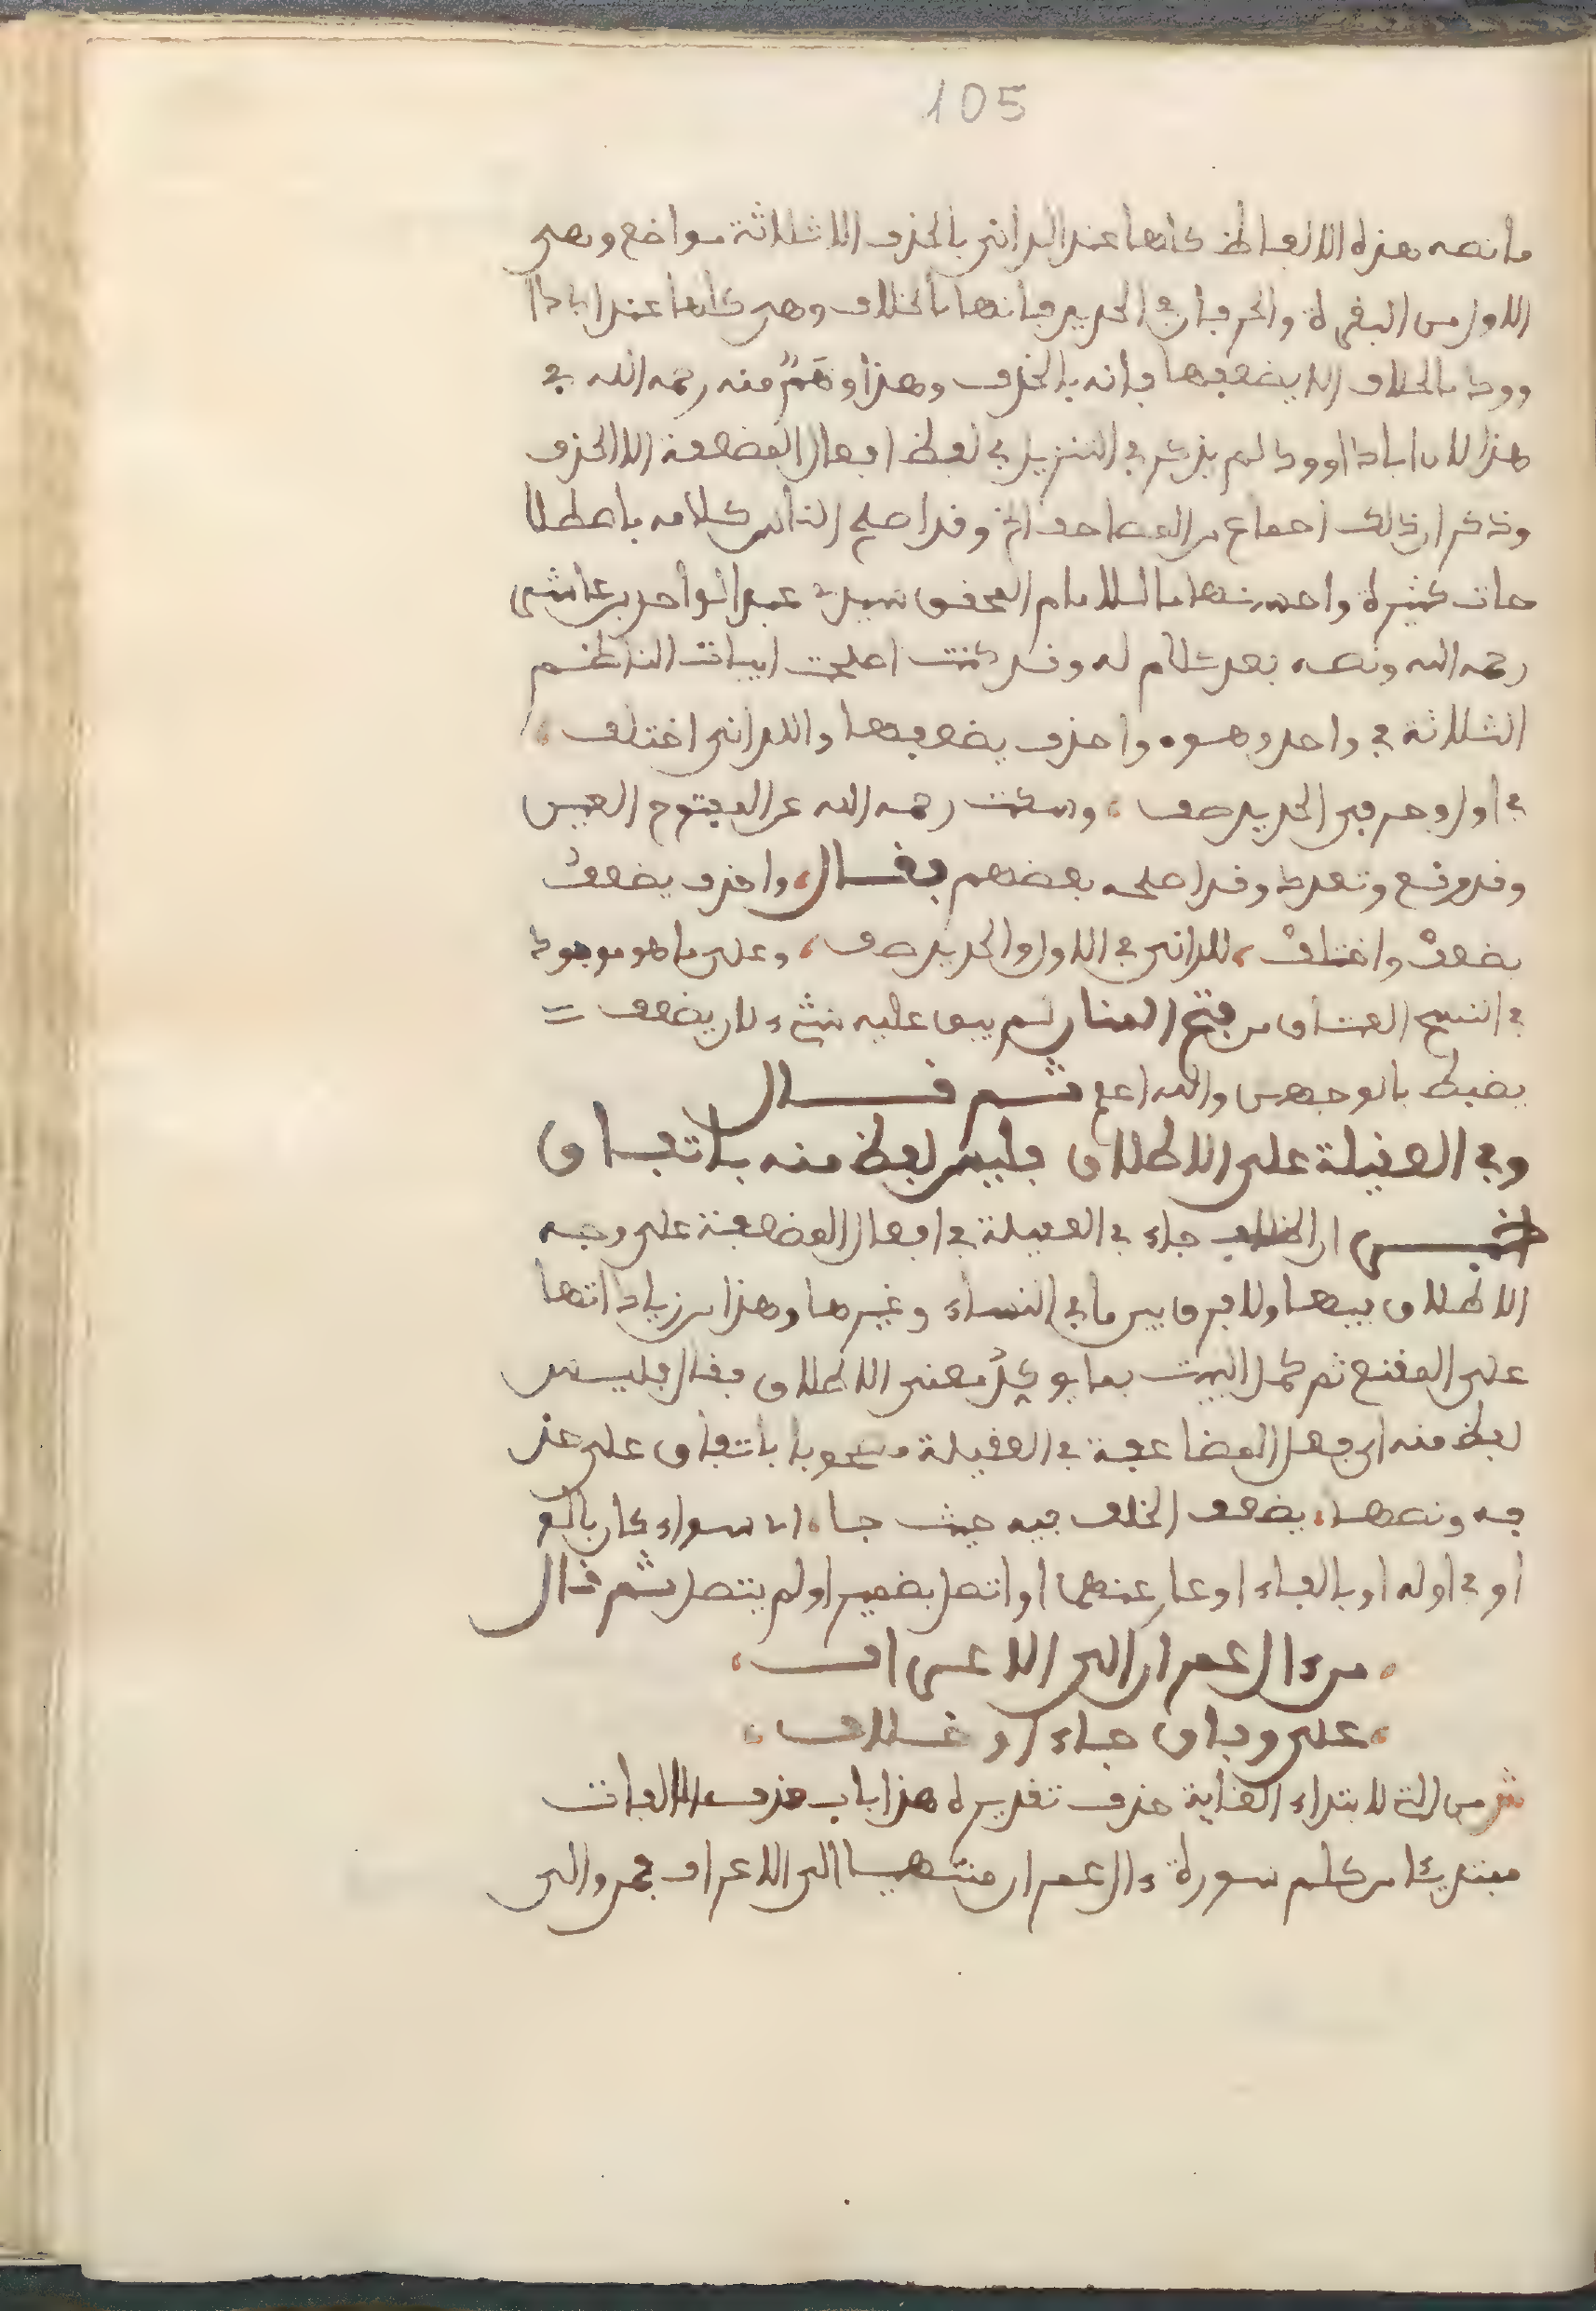 105
ما نصه هذه الالفاظ كلها عند الداني بالحذف الا ثلاثة مواضع وهي
الاول من البقرة والحرفان في الحديد فانها بالخلاف وهي كلها عند ابا دا
وود بالخلاف الا يضعفها فانه بالحذف وهذا وهَمٌ منه رحمه الله في
هذا لان ابا داوود لم يذكر في التنزيل في لفظ افعال المضعفة الا الحذف
وذكر ان ذلك اجماع من المصاحف الخ وقد اصلح الناس كلامه باصطلا
حات كثيرة واحسنها ما للامام المحقق سيدي عبد الواحد بن عاشر
رحمه الله ونصه بعد كلام له وقد كنت اصلحت ابيات الناظم
الثلاثة في واحد وهو واحذف يضعفها والداني اختلف
في اول وحرفي الحديد صف وسكت رحمه الله عن المفتوح العين
وقد وقع وتعدد وقد اصلحه بعضهم بقال واحذف يضعفُ
يضعفْ واختلفْ للداني في الاول والحديد صف وعلى ما هو موجود
في النسخ العتاق من فتح المنان لم يبق عليه شيء لان يضعف =
يضبط بالوجهين والله اعلم ثم قال
وفي العقيلة على الاطلاق فليس لفظ منه باتفاق
اخبر ان الخلاف جاء في العقيلة في افعال المضعفة على وجه
الاطلاق فيها ولا فرق بين ما في النساء وغيرها وهذا من زياداتها
على المقنع ثم كمل البيت بما يوكدُ معنى الاطلاق فقال فليس
لفظ منه اي فعل المضاعفة في العقيلة مصحوبا باتفاق على حذ
فه ونصها يضعف الخلف فيه حيث جا اي سواء كان بالو
او في اوله او بالفاء او عار عنهما او اتصل بضمير او لم يتصل ثم قال
من ءال عمران الى الاعراف
على وفاق جاء او خلاف
ش من التي لابتداء الغاية حذف تقديره هذا باب حذف الالفات
مبتديئا من كلم سورة ءال عمران منتهيا الى الاعراف فمن والى